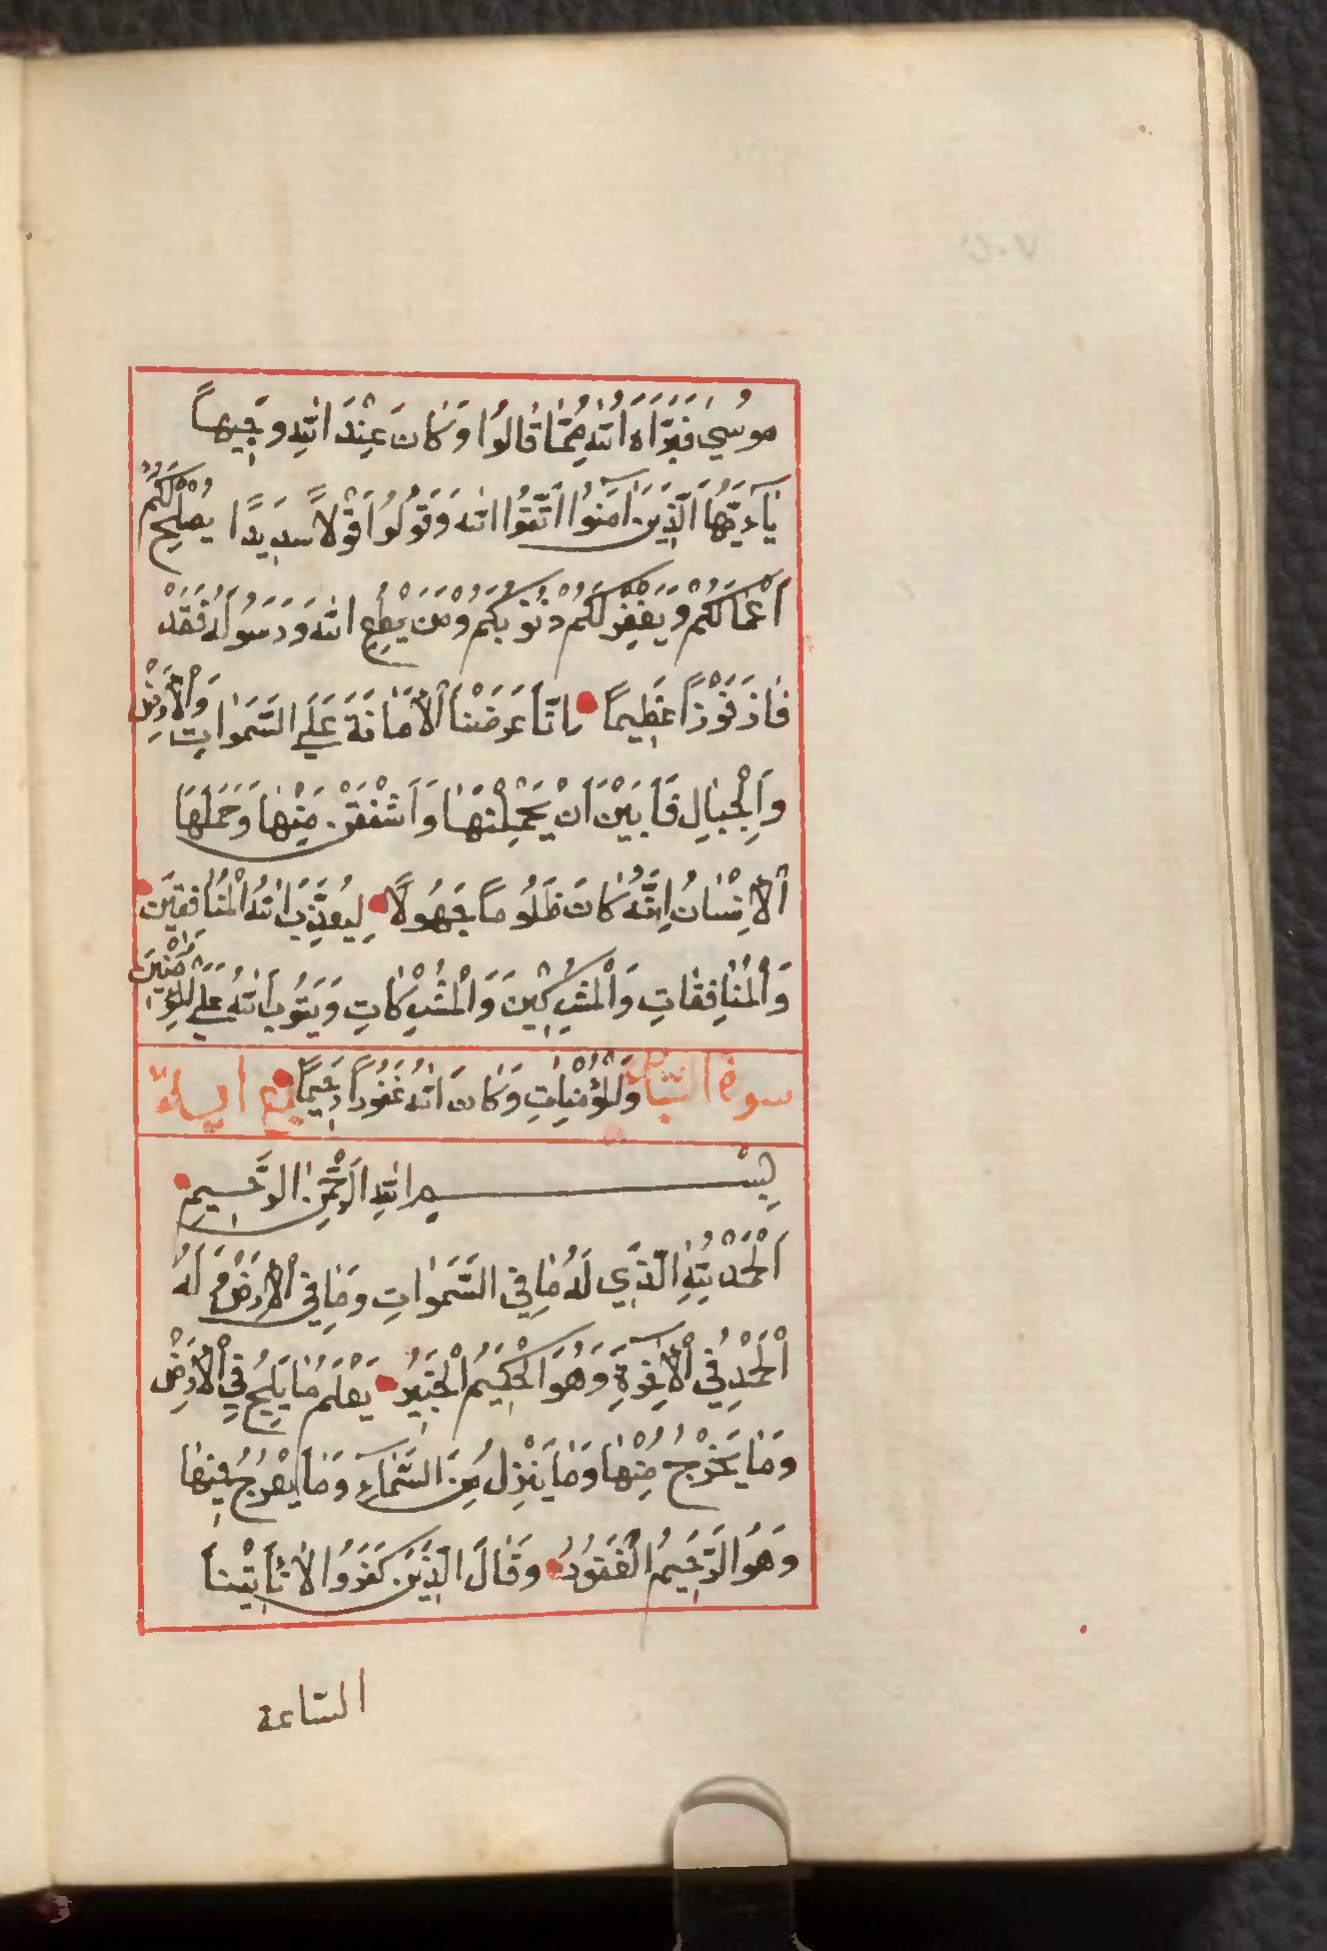 مُوسٰي فَبَرَّاَهُ اللّٰهُ مِمَّا قَالُوُا وَكَانَ عِنْدَ اللّٰهِ وَجٖيهاً
يَآءَيُّهَا الَّذٖينَ اٰمَنُوُا اتَّقُوُا اللّٰه وَقُولُوُا قَوْلاً سَدٖيدًا يُصْلِحْ لَكُمْ
اَعْمَالَكُمْ وَيَغْفِرْ لَكُمْ ذُنُوبَكُمْ وَمَنْ يُطِعِ اللّٰهَ وَرَسُولَهُ فَقَدْ
فَازَ فَوْزاً عَظٖيماً اِنَّا عَرَضْنَا اْلاَمَانَةَ عَلَي السَّمٰوَاتِ وَاْلاَرْضِ
وَاْلجِبَالِ فَاَبَيْنَ اَنْ يَحْمِلْنَهَا وَاَشْفَقْنَ مِنْهَا وَحَمَلَهَا
اْلاِنْسَانُ اِنَّهُ كَانَ ظَلُوماً جَهُولًا لِيُعَذِّبَ اللّٰهُ اْلمُنَافِقٖينَ
وَاْلمُنَافِقَاتِ وَاْلمُشْرِكٖينَ وَاْلمُشْرِكَاتِ وَيَتُوبَ اللّٰهُ عَلَي اْلمُؤْمِنٖينَ
سورة السبا وَاْلمُؤْمِنَاتِ وَكَانَ اللّٰهُ غَفُوراً رَحٖيماً
بِسْمِ اللّٰهِ الرَّحْمٰنِ الرَّحٖيمِ
اَلْحَمْدُ لِلّٰهِ الَّذٖي لَهُ مَا فِي السَّمٰوَاتِ وَمَا فِي اْلاَرْضِ وَلَهُ
اْلحَمْدُ فِي اْلاٰخِرَةِ وَهُوَ اْلحَكٖيمُ اْلخَبٖيرُ يَعْلَمُ مَا يَلِجُ فِي اْلاَرْضِ
وَمَا يَخْرُجُ مِنْهَا وَمَا يَنْزِلُ مِنَ السَّمَآءِ وَمَا يَعْرُجُ فٖيهَا
وَهُوَ الرَّحٖيمُ اْلغَفُورُ وَقَالَ الَّذٖينَ كَفَرُوُا لاَ تَأْتٖينَا
الساعة